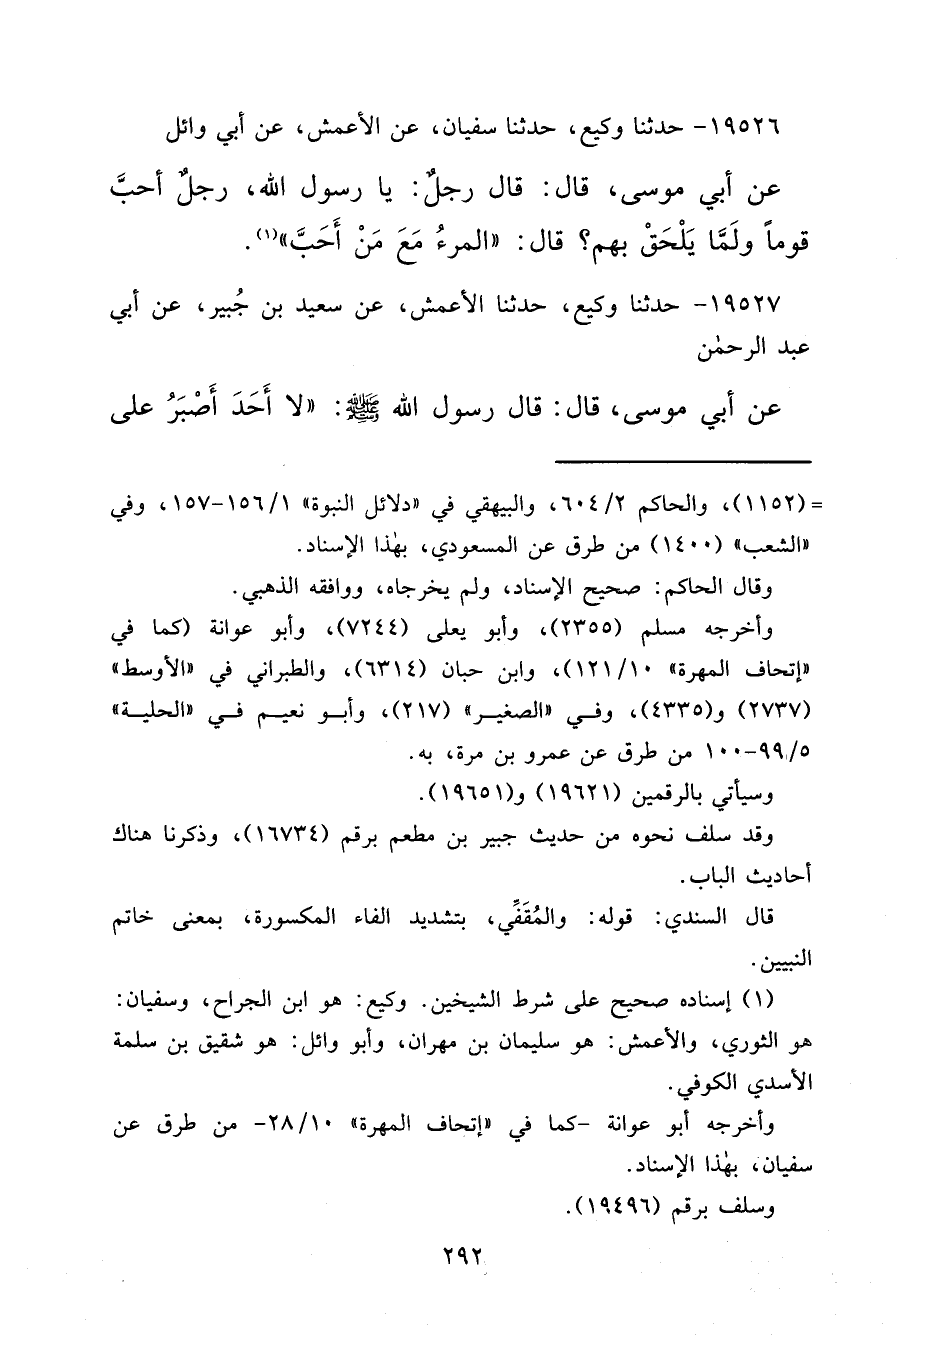 ١٩٥٢٦- حدثنا وكيع، حدثنا سفيان، عن الأعمش، عن أبي وائل
عن أبي موسى، قال: قال رجلٌ: يا رسول الله، رجلٌ أحبَّ
قوماً ولَمَّا يَلْحَقْ بهم؟ قال: «المرءُ مَعَ مَنْ أَحَبَّ»(١).
١٩٥٢٧- حدثنا وكيع، حدثنا الأعمش، عن سعيد بن جُبير، عن أبي
عبد الرحمٰن
عن أبي موسى، قال: قال رسول الله ﷺ: «لا أَحَدَ أَصْبَرُ على
= (١١٥٢)، والحاكم ٦٠٤/٢، والبيهقي في «دلائل النبوة» ١٥٦/١-١٥٧، وفي
«الشعب» (١٤٠٠) من طرق عن المسعودي، بهٰذا الإسناد.
وقال الحاكم: صحيح الإسناد، ولم يخرجاه، ووافقه الذهبي.
وأخرجه مسلم (٢٣٥٥)، وأبو يعلى (٧٢٤٤)، وأبو عوانة (كما في
«إتحاف المهرة» ١٢١/١٠)، وابن حبان (٦٣١٤)، والطبراني في «الأوسط»
(٢٧٣٧) و(٤٣٣٥)، وفي «الصغير» (٢١٧)، وأبو نعيم في «الحلية»
٩٩/٥-١٠٠ من طرق عن عمرو بن مرة، به.
وسيأتي بالرقمين (١٩٦٢١) و(١٩٦٥١).
وقد سلف نحوه من حديث جبير بن مطعم برقم (١٦٧٣٤)، وذكرنا هناك
أحاديث الباب.
قال السندي: قوله: والمُقَفِّي، بتشديد الفاء المكسورة، بمعنى خاتم
النبيين.
(١) إسناده صحيح على شرط الشيخين. وكيع: هو ابن الجراح، وسفيان:
هو الثوري، والأعمش: هو سليمان بن مهران، وأبو وائل: هو شقيق بن سلمة
الأسدي الكوفي.
وأخرجه أبو عوانة -كما في «إتحاف المهرة» ٢٨/١٠- من طرق عن
سفيان، بهٰذا الإسناد.
وسلف برقم (١٩٤٩٦).
٢٩٢